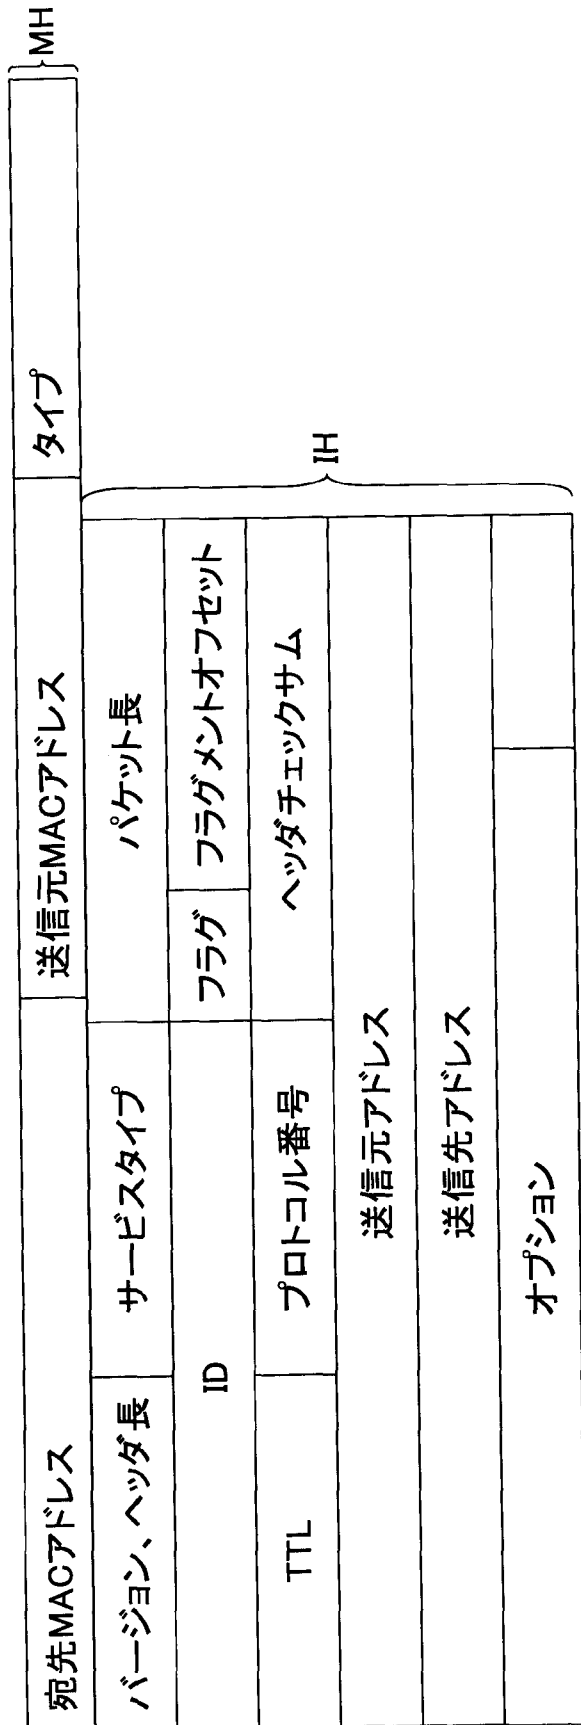 宛先MACアドレス 送信元MACアドレス タイプ MH
バージョン、ヘッダ長 サービスタイプ パケット長
ID フラグ フラグメントオフセット
TTL プロトコル番号 ヘッダチェックサム
IH
送信元アドレス
送信先アドレス
オプション